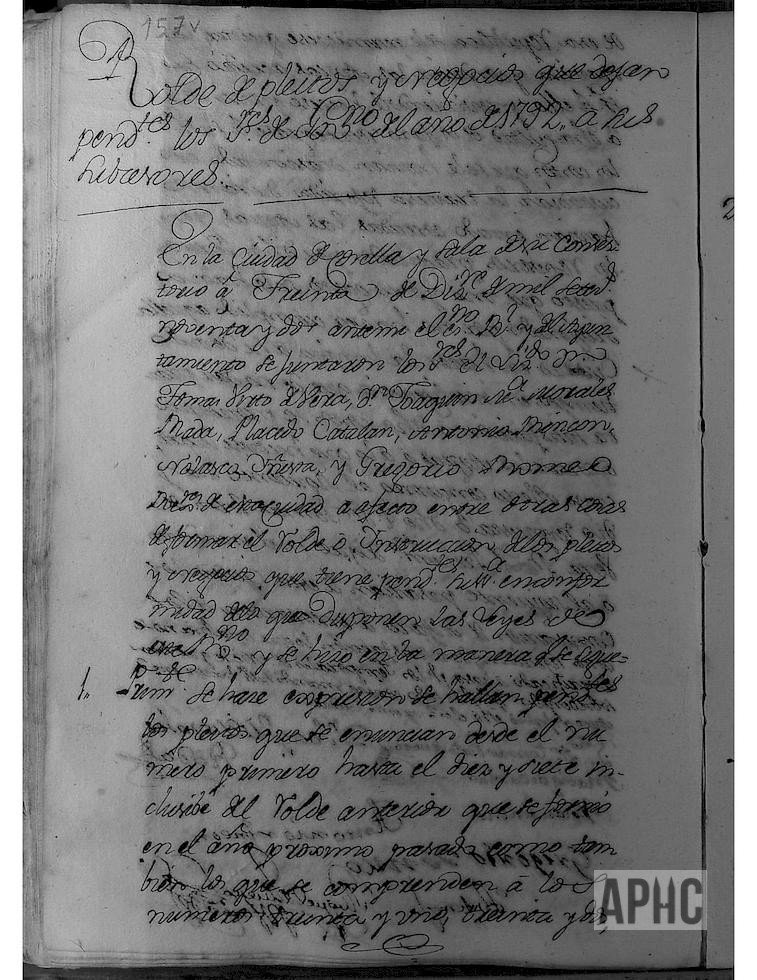 157v
Rolde de pleitos y negocios que dejan
pend.tes los S.res de Gov.no del año de 1792,, a sus
subcesores.
En la Ciudad de Corella y sala de su Consis
torio á Treinta de Diz.re de mil sett.s
noventa y dos ante mi el es.no R.l y del Ayun
tamiento se juntaron los S.res D.n
Tomas Virto de Vera, D.n Joaquin M.a Morales
Rada, Placido Catalan, Antonio Rincon
Nolasco y Gregorio
de esta Ciudad a efecto entre otras cosas
de formar el Rolde o Instruccion de los pleitos
y negocios que tiene pend.tes en confor
midad de lo que Disponen las Leyes de
este R.no y se hizo en la manera q.e se sigue
1.. Prim. se hace expresion se hallan pend.tes
los pleitos que se enuncian desde el nu
mero primero hasta el diez y siete in-
clusibe del Rolde anterior que se formó
en el año proximo pasado como tam
bien los que se comprenden á los
numeros treinta y uno, treinta y dos,
APHC